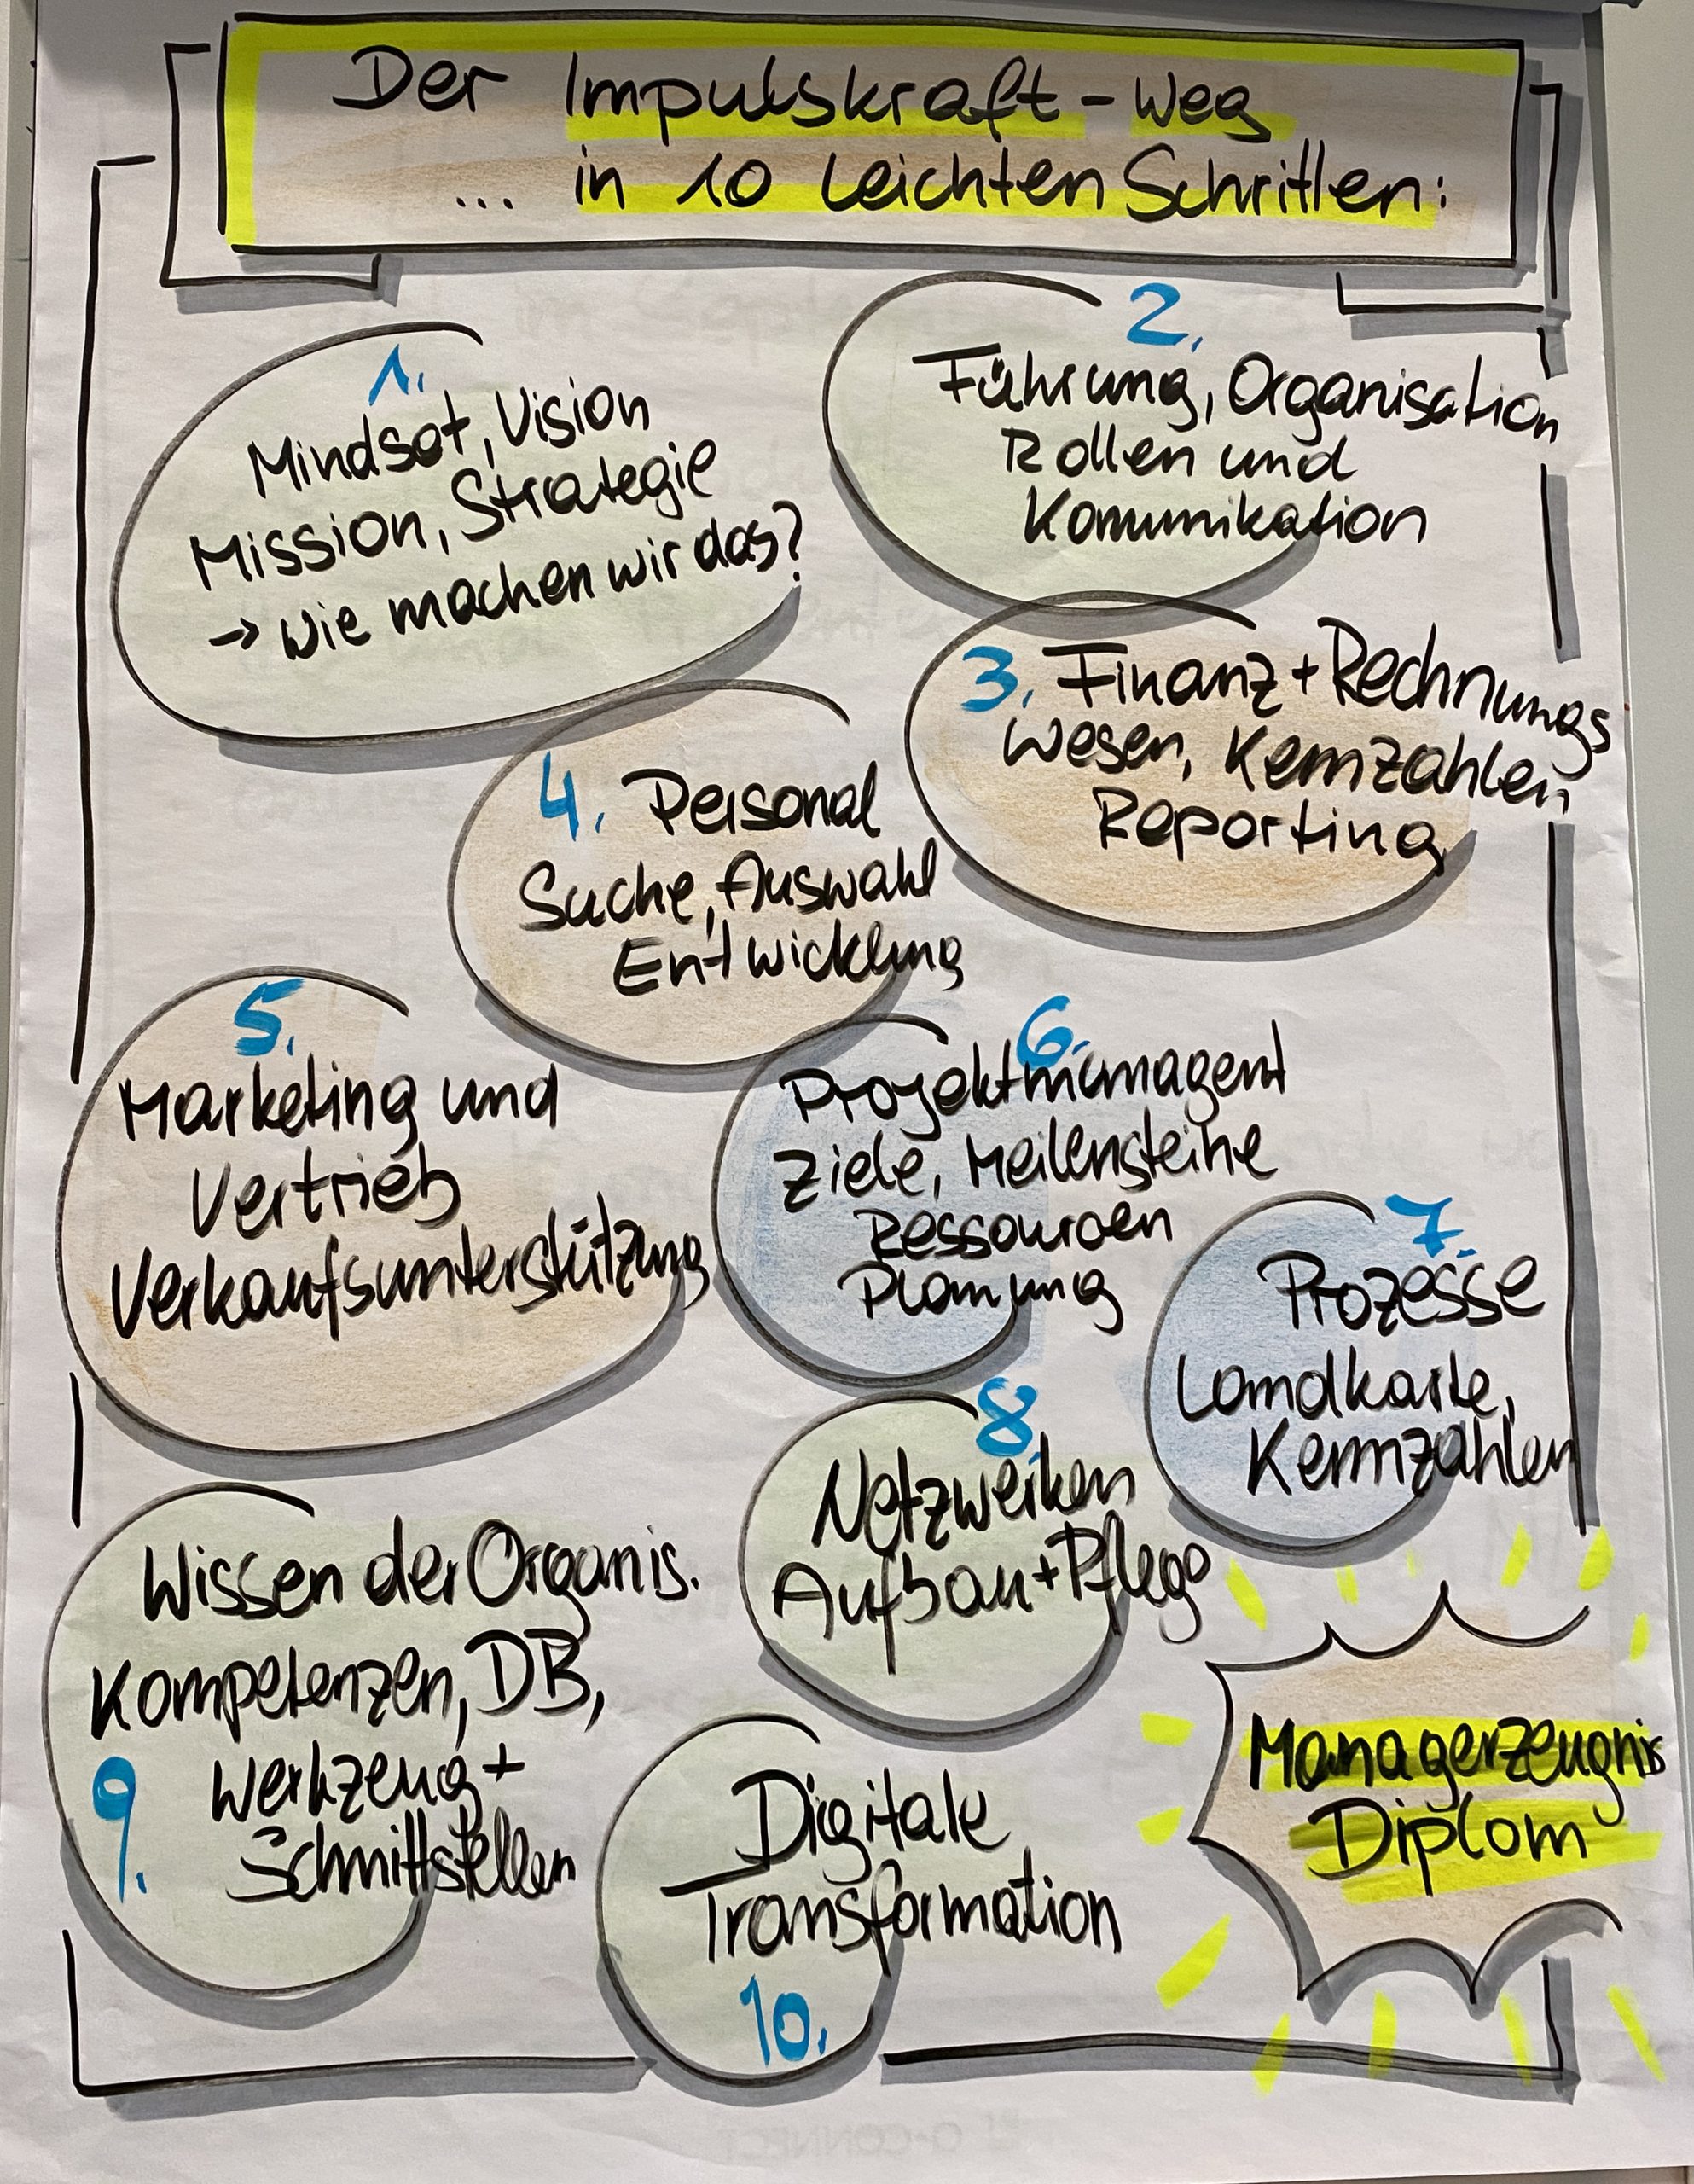 Der Impulskraft-Weg
... in 10 leichten Schritten:
1.
Mindset, Vision
Mission, Strategie
→ wie machen wir das?
2.
Führung, Organisation
Rollen und
Kommunikation
3. Finanz + Rechnungs
wesen, Kennzahlen,
Reporting
4. Personal
Suche, Auswahl
Entwicklung
5.
Marketing und
Vertrieb
Verkaufsunterstützung
6.
Projektmanagent
Ziele, Meilensteine
Ressourcen
Planung
7.
Prozesse
Landkarte,
Kennzahlen
8.
Netzwerken
Aufbau + Pflege
Wissen der Organis.
Kompetenzen, DB,
9. Werkzeug +
Schnittstellen
Digitale
Transformation
10.
Managerzeugnis
Diplom